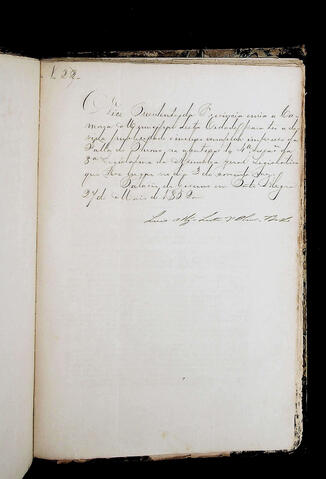 O Vice Presidente da Provincia envia a Ca-
mara Municipal desta Cidade para ter a de-
vida publicidade o incluso exemplar impresso da
Falla do Throno, na abertura da 4ª Sessão da
8ª Legislatura da Assemblea geral Legislativa
que teve lugar no dia 3 do corrente mez.
Palacio do Governo em Porto Alegre
27 de Maio de 1852
Luis